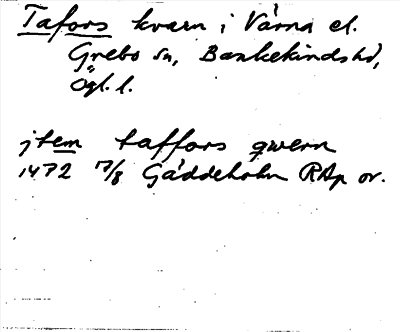 Tafors kvarn i Värna el.
Grebo sn, Bankekinds hd,
Ögl. l.
jtem taffors qwern
1472 7/8 Gäddeholm RAp or.